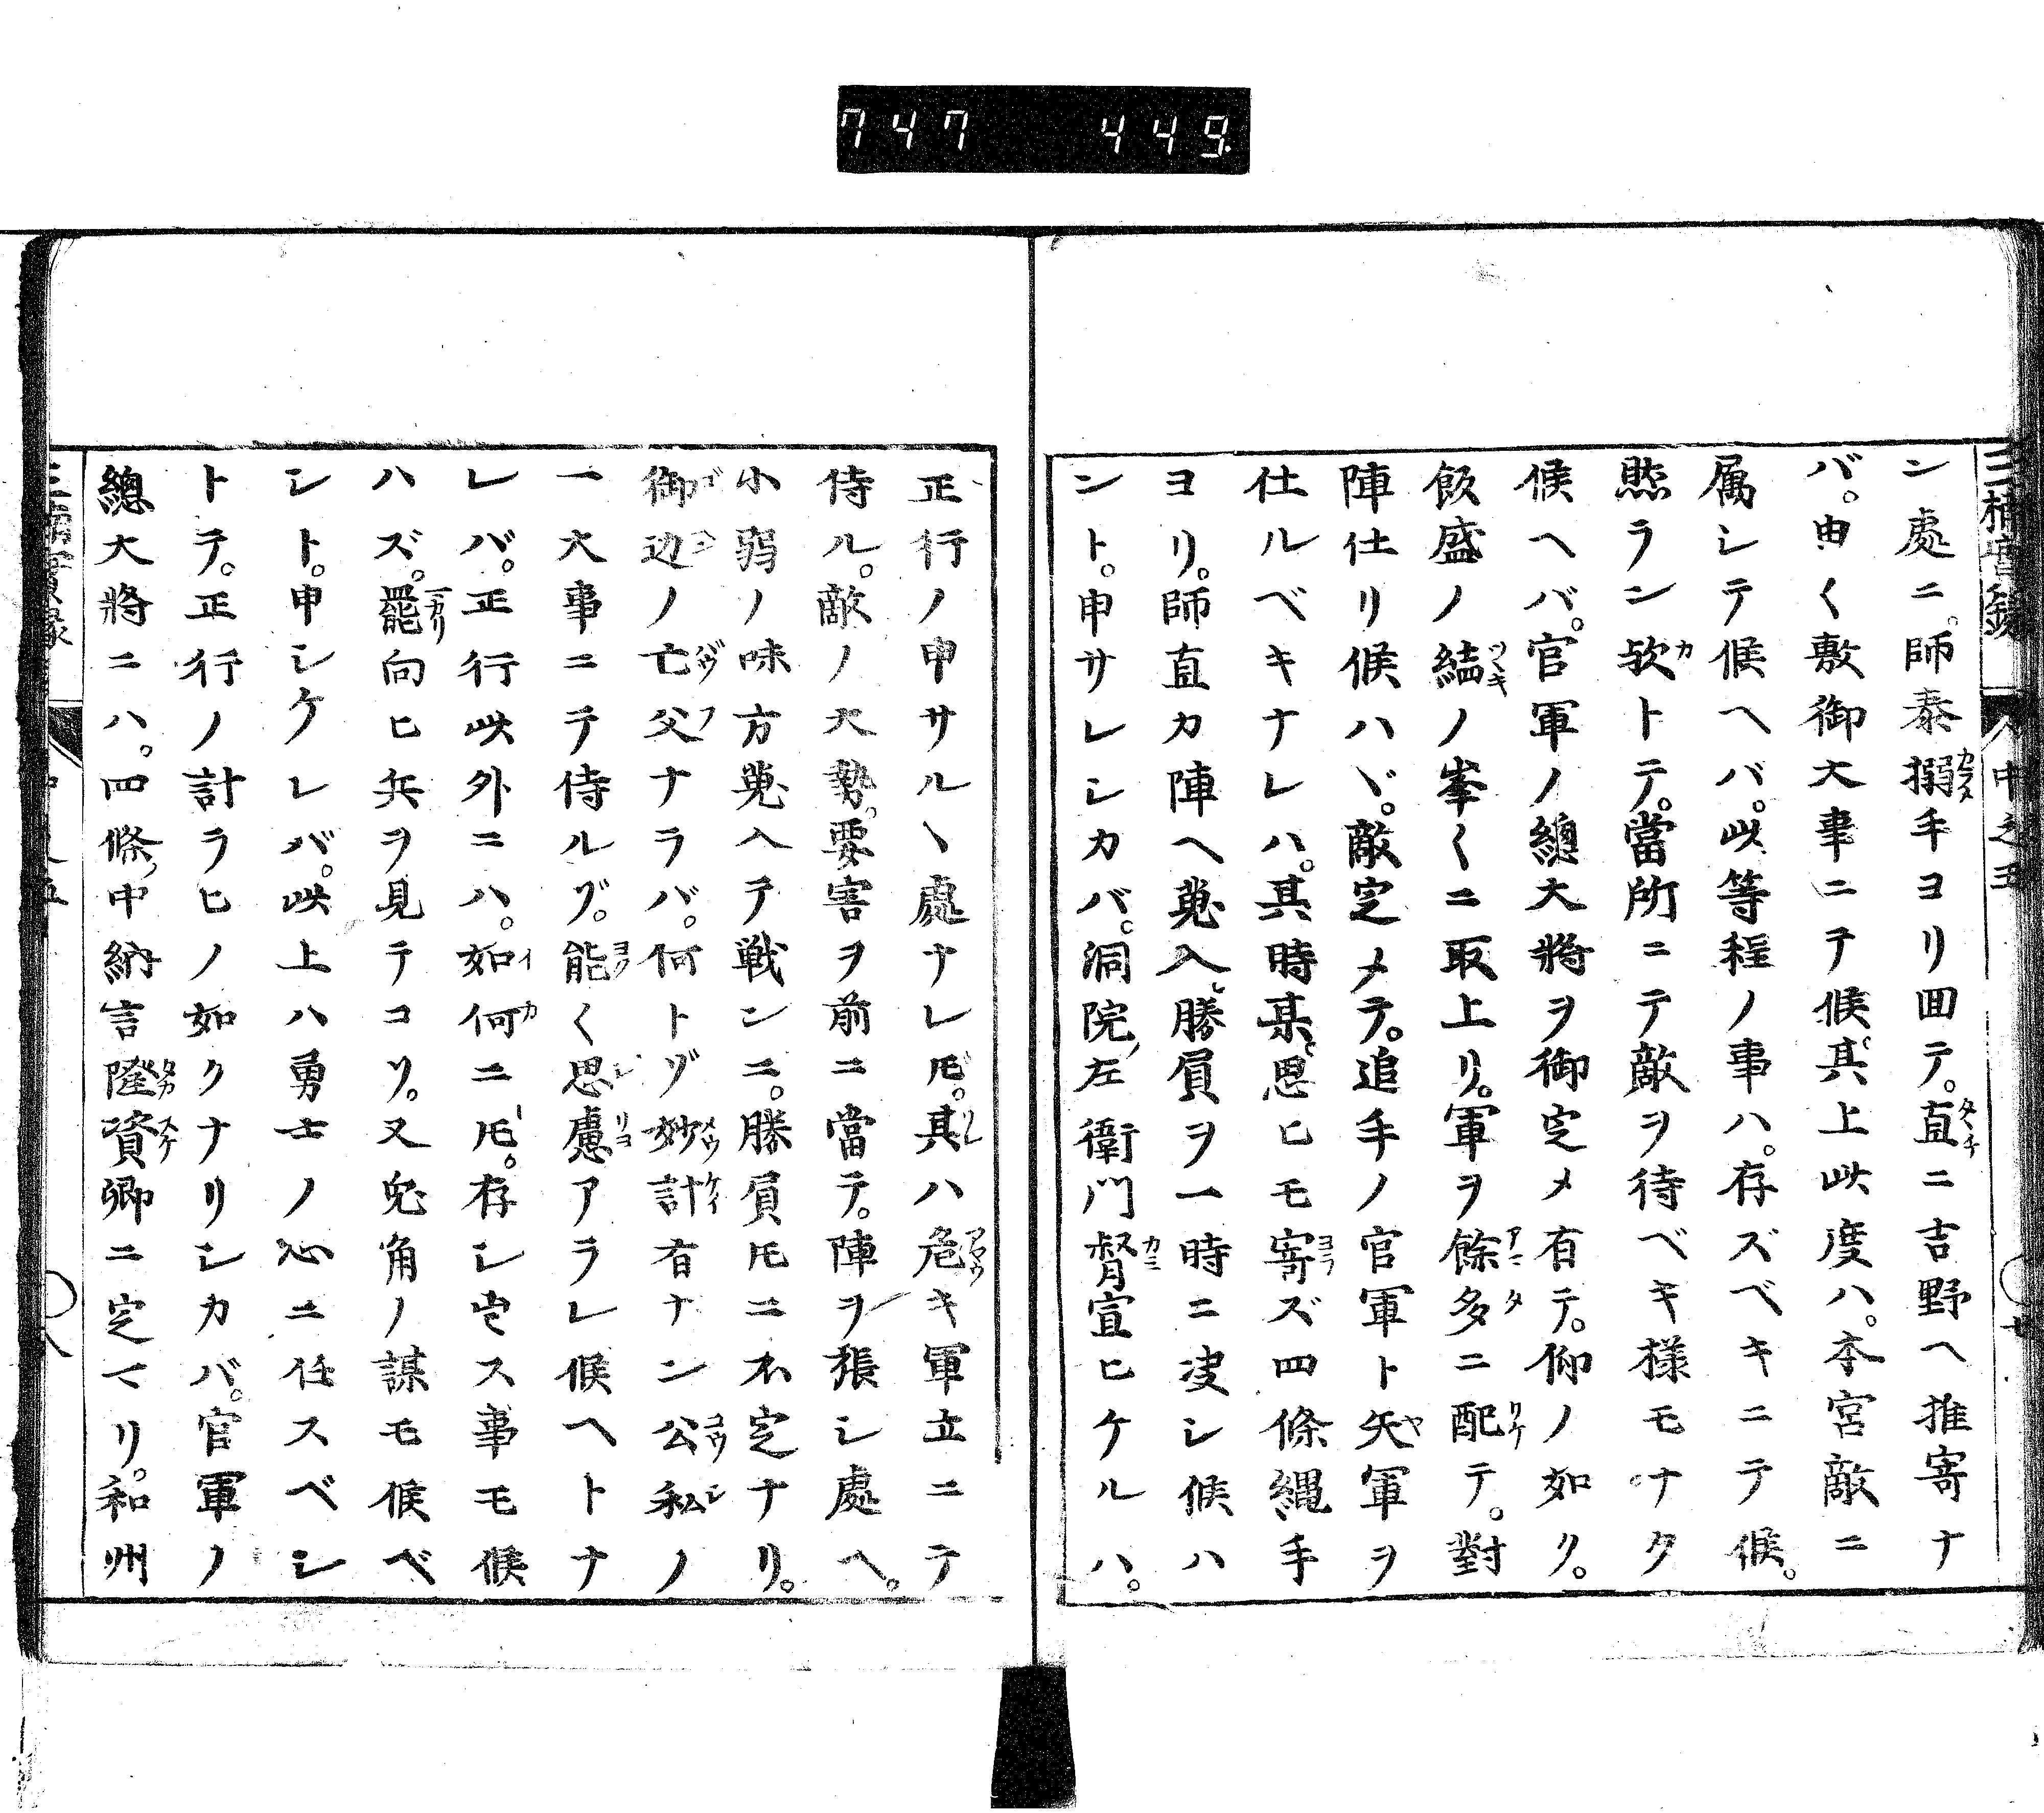 747 449
三楠實録
中之五
ン處ニ。師泰搦手ヨリ囬テ。直ニ吉野ヘ推寄ナ
バ。由〱敷御大事ニテ候。其上此度ハ。本宮敵ニ
属シテ候ヘバ。此等程ノ事ハ。存ズベキニテ候。
然ラン欤トテ。當所ニテ敵ヲ待ベキ様モナク
候ヘバ。官軍ノ總大將ヲ御定メ有テ。仰ノ如ク。
飯盛ノ續ノ峯〱ニ取上リ。軍ヲ餘多ニ配テ。對
陣仕リ候ハヾ。敵定メテ。追手ノ官軍ト矢軍ヲ
仕ルベキナレハ。其時某。思ヒモ寄ズ四條縄手
ヨリ。師直カ陣ヘ蒐入。勝負ヲ一時ニ决シ候ハ
ント。申サレシカバ。洞院左衛門督宣ヒケルハ。
正行ノ申サルヽ處ナレ𪜈。其ハ危キ軍立ニテ
侍ル。敵ノ大勢。要害ヲ前ニ當テ。陣ヲ張シ處ヘ。
小弱ノ味方蒐入テ戦ンニ。勝負𪜈ニ不定ナリ。
御辺ノ亡父ナラバ。何トゾ妙計有ナン公私ノ
一大事ニテ侍ルゾ。能く思慮アラレ候ヘトナ
レバ。正行此外ニハ。如何ニ𪜈。存シ出ス事モ候
ハズ。罷向ヒ兵ヲ見テコソ。又兎角ノ謀モ候ベ
シト。申シケレバ。此上ハ勇士ノ心ニ任スベシ
トテ。正行ノ計ラヒノ如クナリシカバ。官軍ノ
總大將ニハ。四條中納言隆資卿ニ定マリ。和州